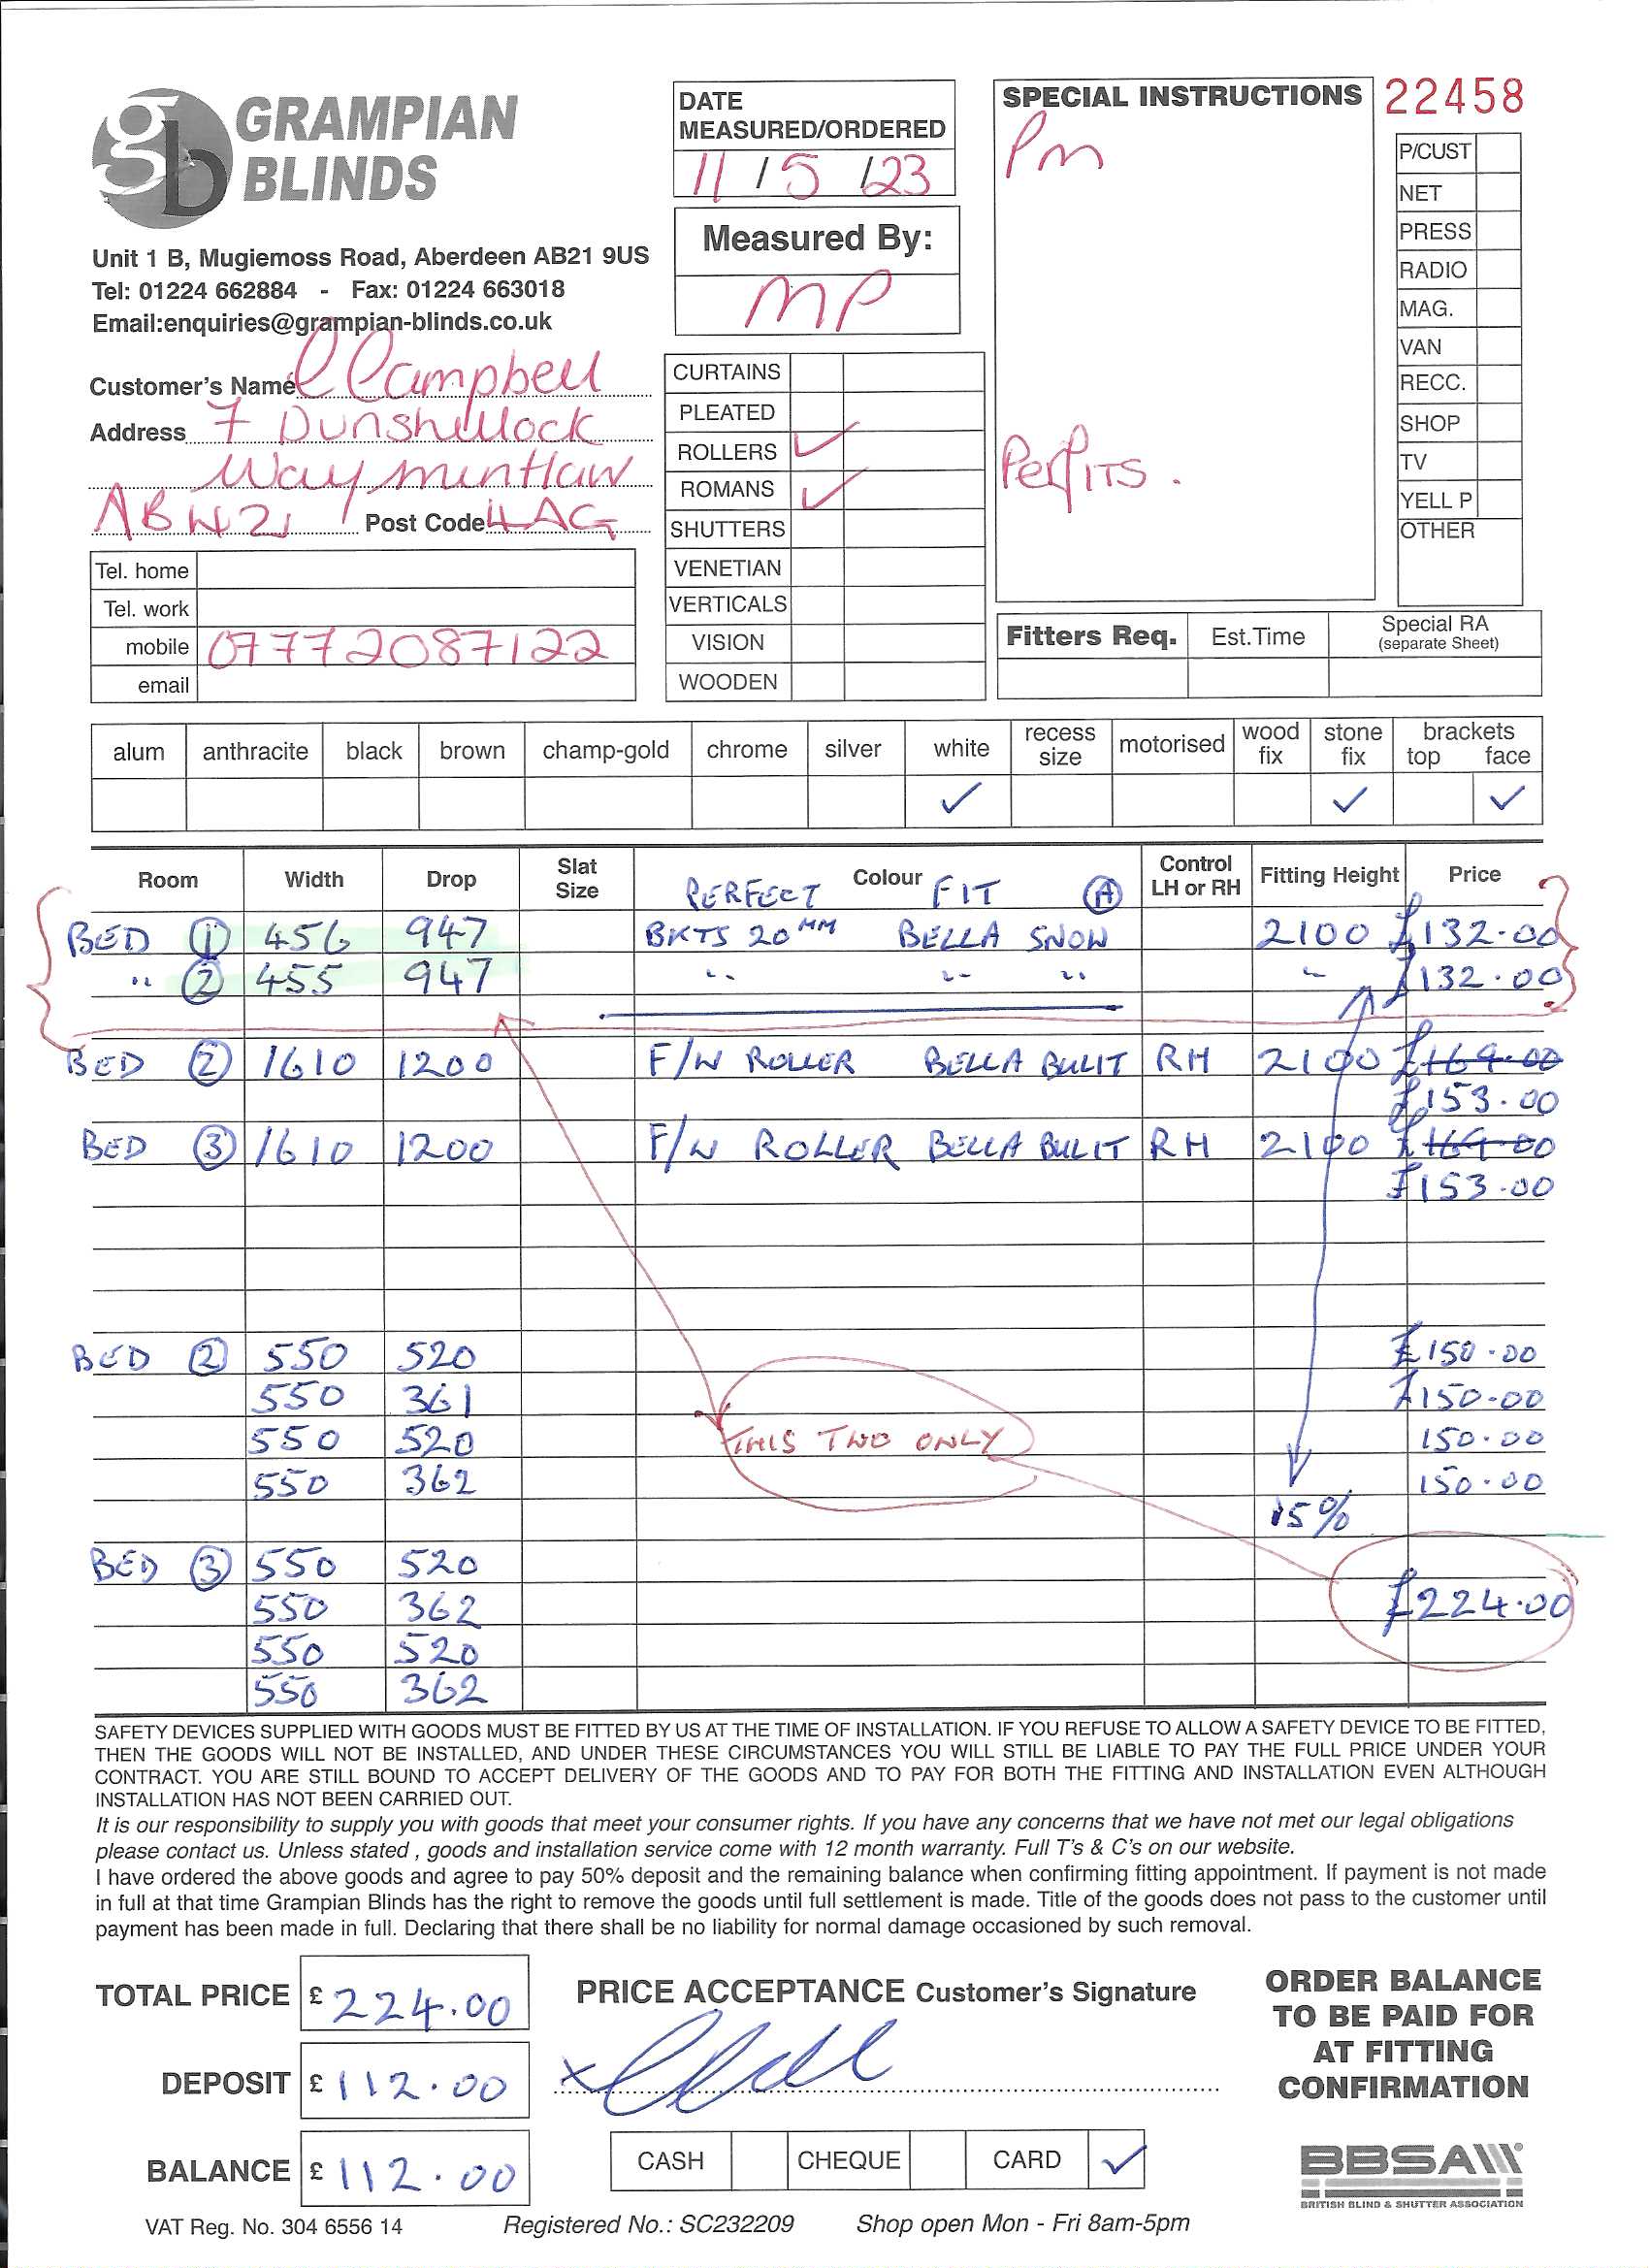 GRAMPIAN
BLINDS
Unit 1 B, Mugiemoss Road, Aberdeen AB21 9US
Tel: 01224 662884 - Fax: 01224 663018
Email:enquiries@grampian-blinds.co.uk
Customer's Name C Campbell
Address 7 Dunshillock
Way mintlaw
AB42 Post Code 4AG
Tel. home
Tel. work
mobile 07772087122
email
DATE
MEASURED/ORDERED
11 / 5 / 23
Measured By:
MP
CURTAINS
PLEATED
ROLLERS ✓
ROMANS ✓
SHUTTERS
VENETIAN
VERTICALS
VISION
WOODEN
SPECIAL INSTRUCTIONS
Pm
Perfits.
22458
P/CUST
NET
PRESS
RADIO
MAG.
VAN
RECC.
SHOP
TV
YELL P
OTHER
Fitters Req. Est.Time Special RA
(separate Sheet)
alum anthracite black brown champ-gold chrome silver white recess size motorised wood fix stone fix brackets top face
✓ ✓ ✓
Room Width Drop Slat Size Colour Control LH or RH Fitting Height Price
PERFECT FIT A
BED 1 456 947 BKTS 20MM BELLA SNOW 2100 £132.00
" 2 455 947 " " " " £132.00
BED 2 1610 1200 F/W ROLLER BELLA BULIT RH 2100 £169.00
£153.00
BED 3 1610 1200 F/W ROLLER BELLA BULIT RH 2100 £169.00
£153.00
BED 2 550 520 £150.00
550 361 £150.00
550 520 150.00
550 362 150.00
THIS TWO ONLY
15%
BED 3 550 520
550 362 £224.00
550 520
550 362
SAFETY DEVICES SUPPLIED WITH GOODS MUST BE FITTED BY US AT THE TIME OF INSTALLATION. IF YOU REFUSE TO ALLOW A SAFETY DEVICE TO BE FITTED,
THEN THE GOODS WILL NOT BE INSTALLED, AND UNDER THESE CIRCUMSTANCES YOU WILL STILL BE LIABLE TO PAY THE FULL PRICE UNDER YOUR
CONTRACT. YOU ARE STILL BOUND TO ACCEPT DELIVERY OF THE GOODS AND TO PAY FOR BOTH THE FITTING AND INSTALLATION EVEN ALTHOUGH
INSTALLATION HAS NOT BEEN CARRIED OUT.
It is our responsibility to supply you with goods that meet your consumer rights. If you have any concerns that we have not met our legal obligations
please contact us. Unless stated , goods and installation service come with 12 month warranty. Full T's & C's on our website.
I have ordered the above goods and agree to pay 50% deposit and the remaining balance when confirming fitting appointment. If payment is not made
in full at that time Grampian Blinds has the right to remove the goods until full settlement is made. Title of the goods does not pass to the customer until
payment has been made in full. Declaring that there shall be no liability for normal damage occasioned by such removal.
TOTAL PRICE £ 224.00
DEPOSIT £ 112.00
BALANCE £ 112.00
PRICE ACCEPTANCE Customer's Signature
x
CASH CHEQUE CARD ✓
ORDER BALANCE
TO BE PAID FOR
AT FITTING
CONFIRMATION
BBSA
BRITISH BLIND & SHUTTER ASSOCIATION
VAT Reg. No. 304 6556 14 Registered No.: SC232209 Shop open Mon - Fri 8am-5pm